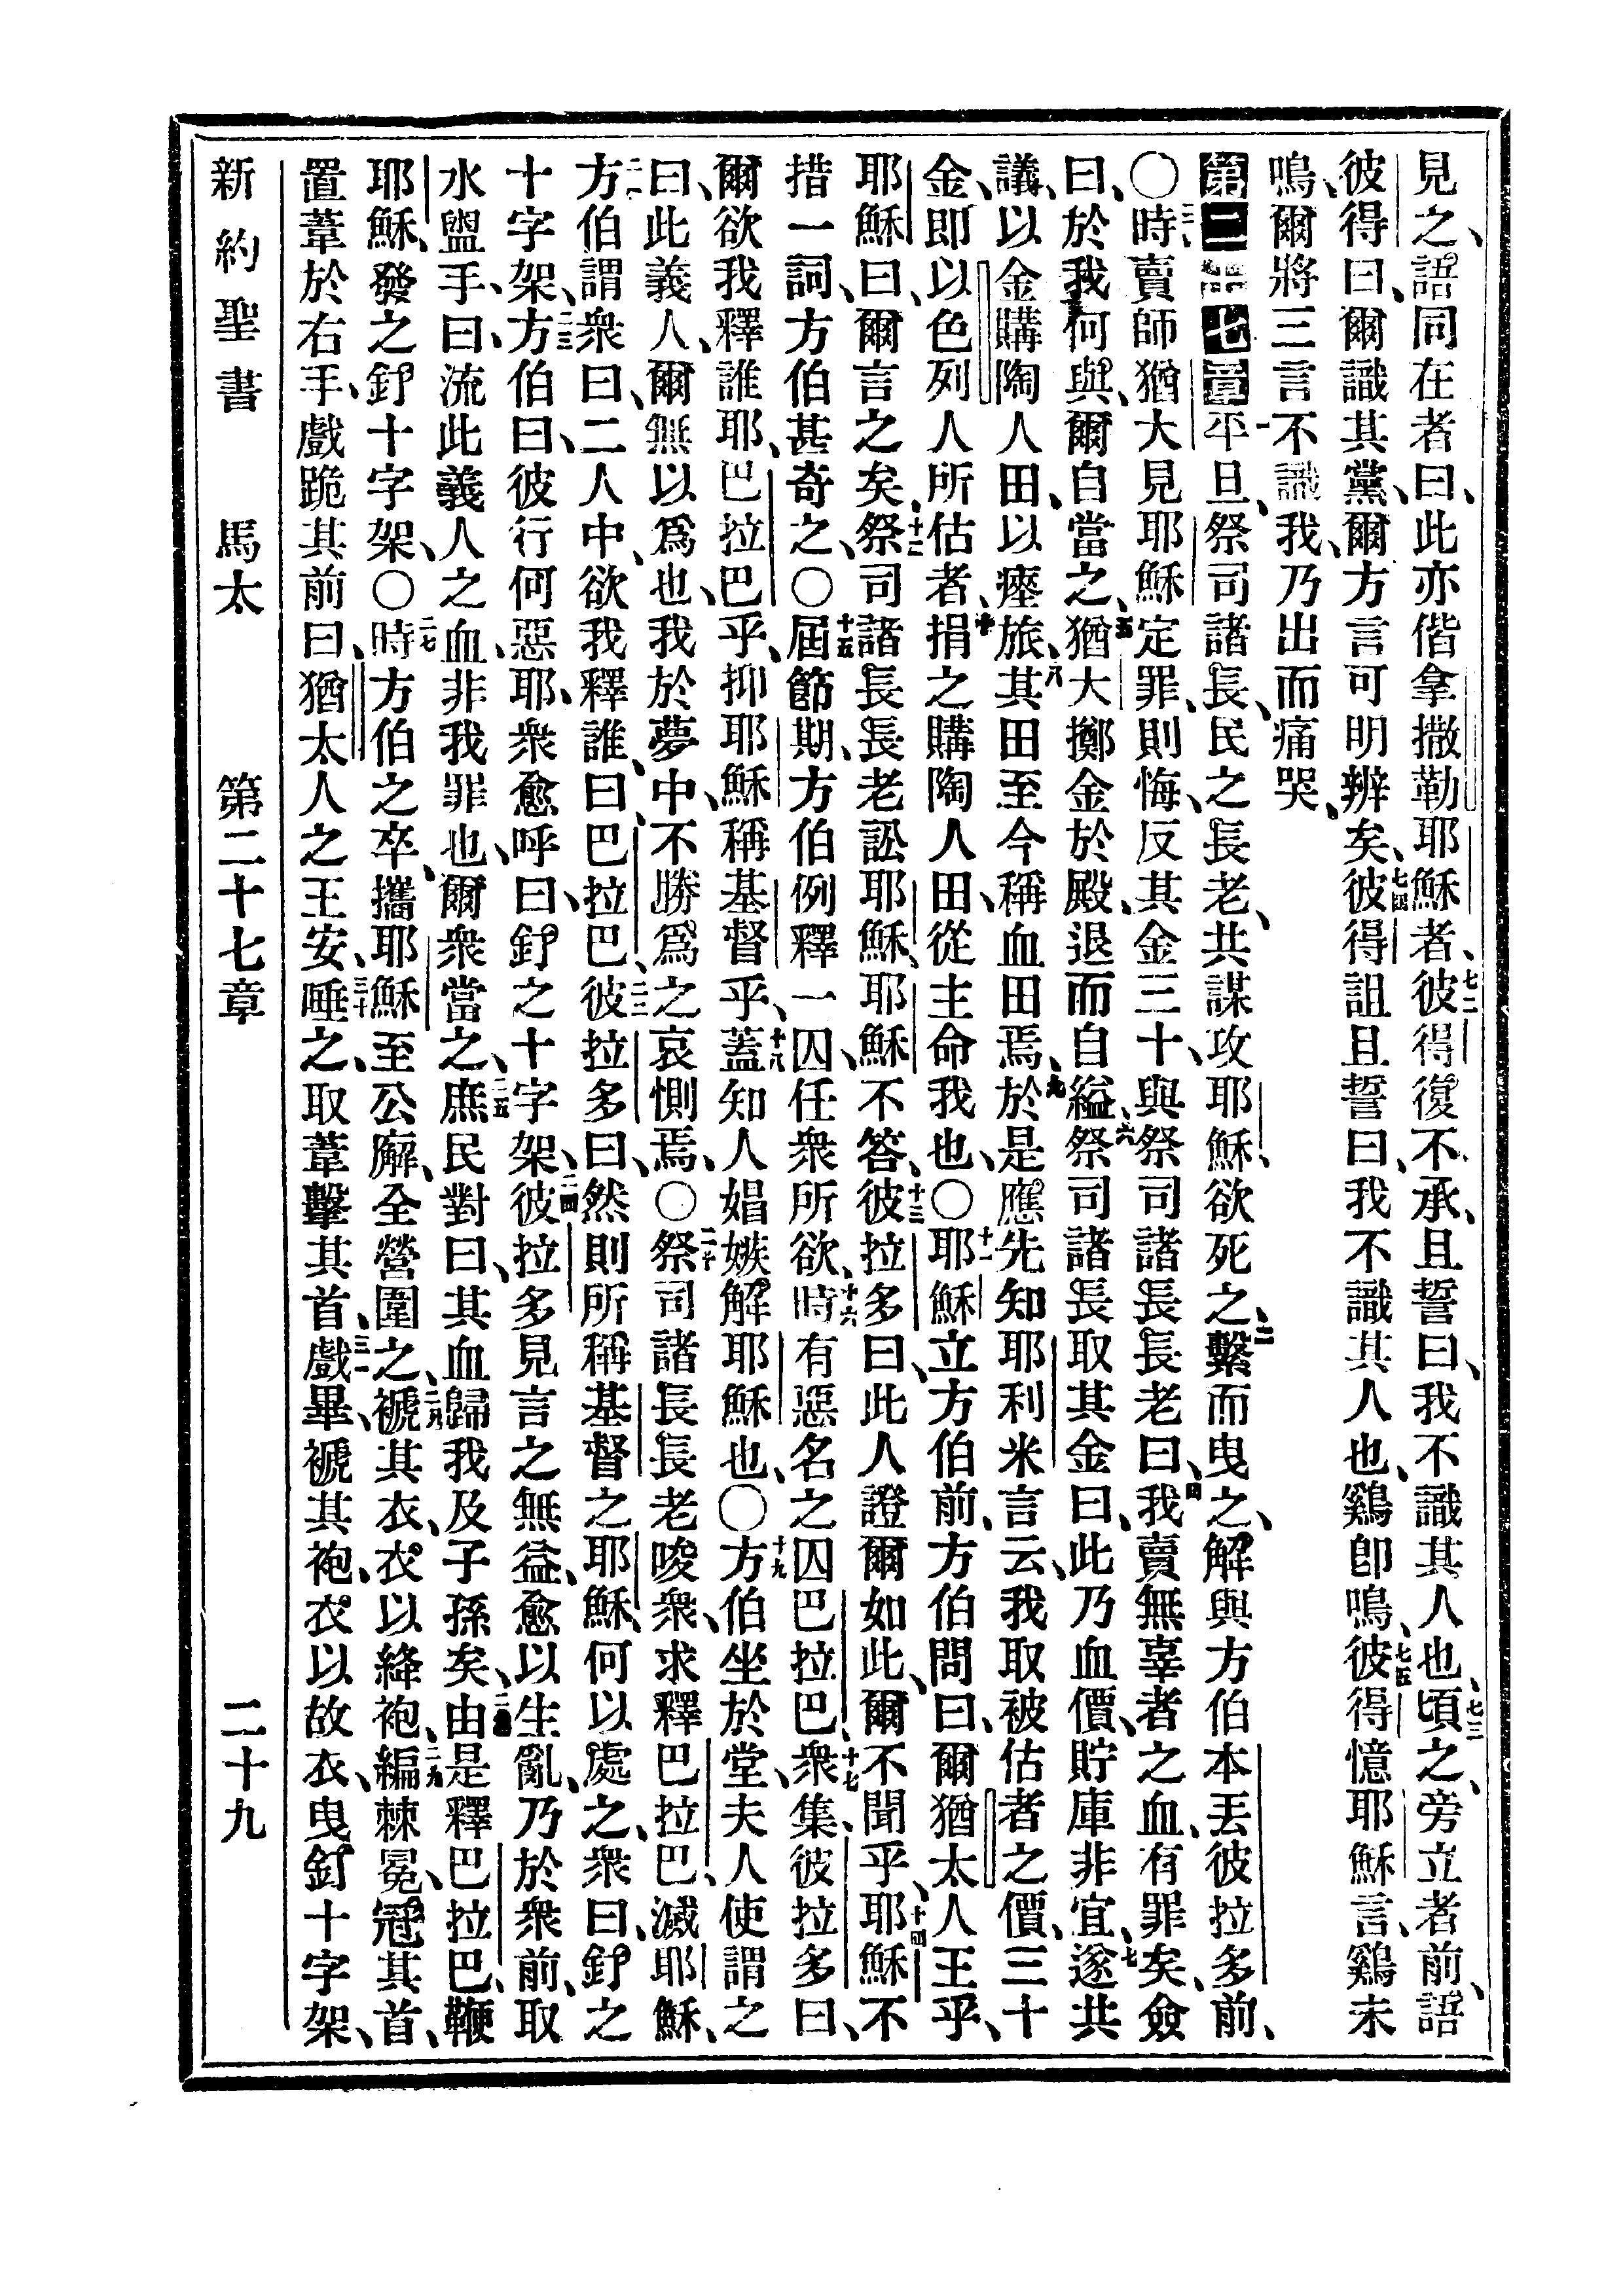 見之、語同在者曰、此亦偕拿撒勒耶穌者、七二彼得復不承、且誓曰、我不識其人也、七三頃之、旁立者前、語
彼得曰、爾識其黨、爾方言可明辨矣、七四彼得詛且誓曰、我不識其人也、鷄卽鳴、七五彼得憶耶穌言、鷄未
鳴、爾將三言不識我、乃出而痛哭、
第二十七章一平旦、祭司諸長、民之長老、共謀攻耶穌、欲死之、二繫而曳之、解與方伯本丟彼拉多前、
〇三時、賣師猶大見耶穌定罪、則悔、反其金三十、與祭司諸長長老曰、四我賣無辜者之血、有罪矣、僉
曰、於我何與、爾自當之、五猶大擲金於殿、退而自縊、六祭司諸長取其金曰、此乃血價、貯庫非宜、七遂共
議、以金購陶人田、以瘞旅、八其田至今稱血田焉、九於是應先知耶利米言云、我取被估者之價、三十
金、卽以色列人所估者、十捐之購陶人田、從主命我也、〇十一耶穌立方伯前、方伯問曰、爾猶太人王乎、
耶穌曰、爾言之矣、十二祭司諸長長老訟耶穌、耶穌不答、十三彼拉多曰、此人證爾如此、爾不聞乎、十四耶穌不
措一詞、方伯甚奇之、〇十五屆節期、方伯例釋一囚、任衆所欲、十六時有惡名之囚巴拉巴、十七衆集、彼拉多曰、
爾欲我釋誰耶、巴拉巴乎、抑耶穌稱基督乎、十八蓋知人娼嫉解耶穌也、〇十九方伯坐於堂、夫人使謂之
曰、此義人、爾無以爲也、我於夢中、不勝爲之哀惻焉、〇二十祭司諸長長老唆衆、求釋巴拉巴、滅耶穌、
二一方伯謂衆曰、二人中、欲我釋誰、曰、巴拉巴、二二彼拉多曰、然則所稱基督之耶穌、何以處之、衆曰、釘之
十字架、二三方伯曰、彼行何惡耶、衆愈呼曰、釘之十字架、二四彼拉多見言之無益、愈以生亂、乃於衆前、取
水盥手、曰、流此義人之血、非我罪也、爾衆當之、二五庶民對曰、其血歸我及子孫矣、二六由是釋巴拉巴、鞭
耶穌、發之釘十字架、〇二七時方伯之卒、攜耶穌至公廨、全營圍之、二八褫其衣、衣以絳袍、二九編棘冕、冠其首、
置葦於右手、戲跪其前曰、猶太人之王安、三十唾之、取葦擊其首、三一戲畢、褫其袍、衣以故衣、曳釘十字架、
新約聖書　馬太　第二十七章　二十九